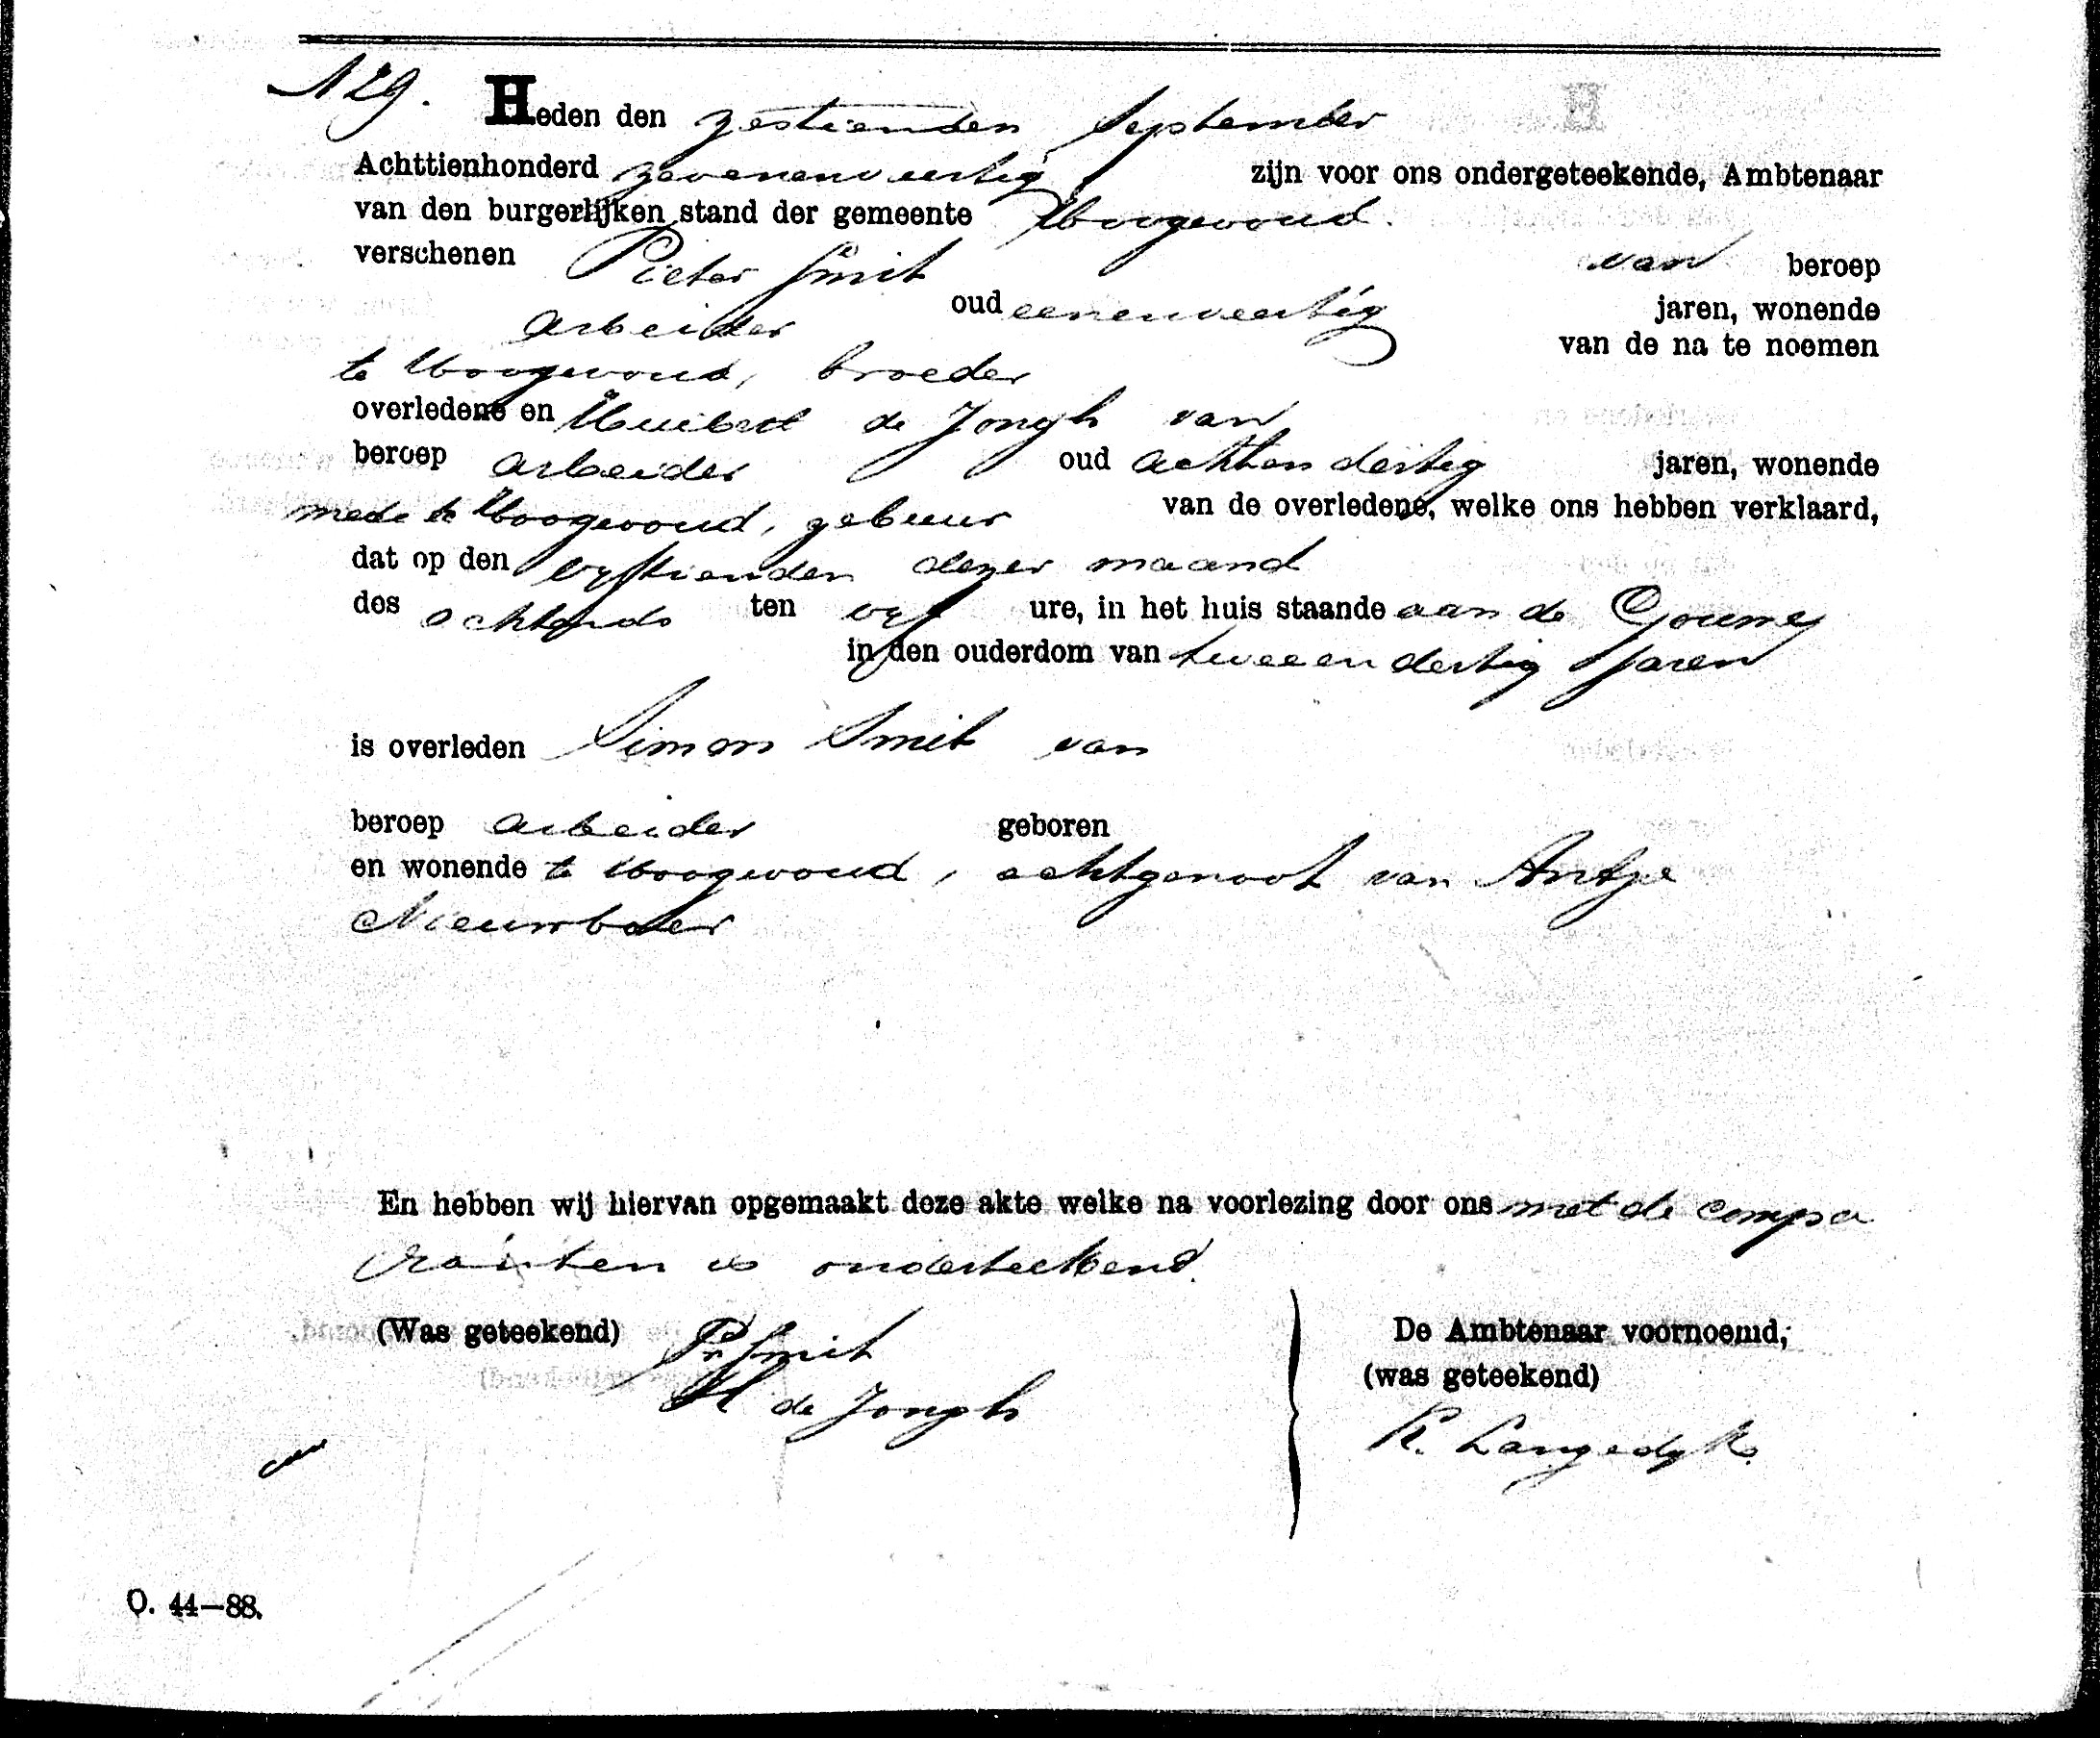 N 29. Heden den zestienden September
Achttienhonderd zevenenveertig zijn voor ons ondergeteekende, Ambtenaar
van den burgerlijken stand der gemeente Hoogwoud.
verschenen Pieter Smit van beroep
arbeider oud eenenveertig jaren, wonende
te Hoogwoud, broeder van de na te noemen
overledene en Huibert de Jongh van
beroep arbeider oud achtendertig jaren, wonende
mede te Hoogwoud, gebuur van de overledene, welke ons hebben verklaard,
dat op den vyftienden dezer maand
des ochtends ten vyf ure, in het huis staande aan de Gouwe
in den ouderdom van tweeendertig Jaren
is overleden Simon Smit van
beroep arbeider geboren
en wonende te Hoogwoud, echtgenoot van Antje
Nieuwboer
En hebben wij hiervan opgemaakt deze akte welke na voorlezing door ons met de compa
ranten is onderteekend.
(Was geteekend) Pr Smit
H de Jongh
De Ambtenaar voornoemd,
(was geteekend)
K. Langedyk.
O. 44—88.